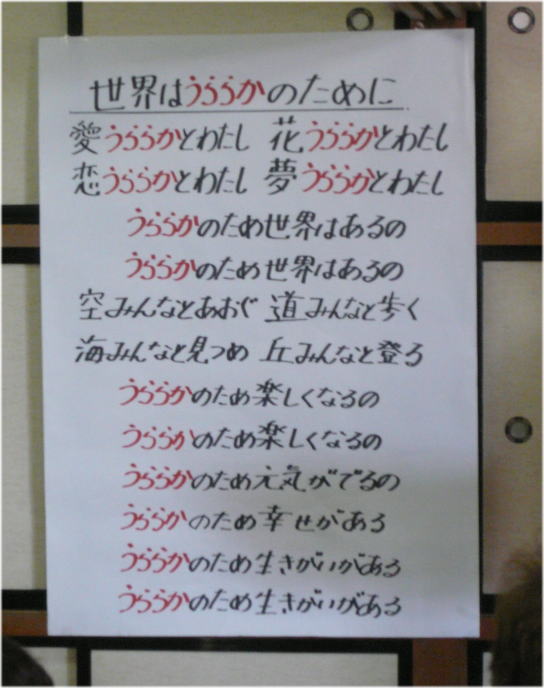 世界はうららかのために
愛うららかとわたし 花うららかとわたし
恋うららかとわたし 夢うららかとわたし
うららかのため世界はあるの
うららかのため世界はあるの
空みんなとあおぐ 道みんなと歩く
海みんなと見つめ 丘みんなと登る
うららかのため楽しくなるの
うららかのため楽しくなるの
うららかのため元気がでるの
うららかのため幸せがある
うららかのため生きがいがある
うららかのため生きがいがある